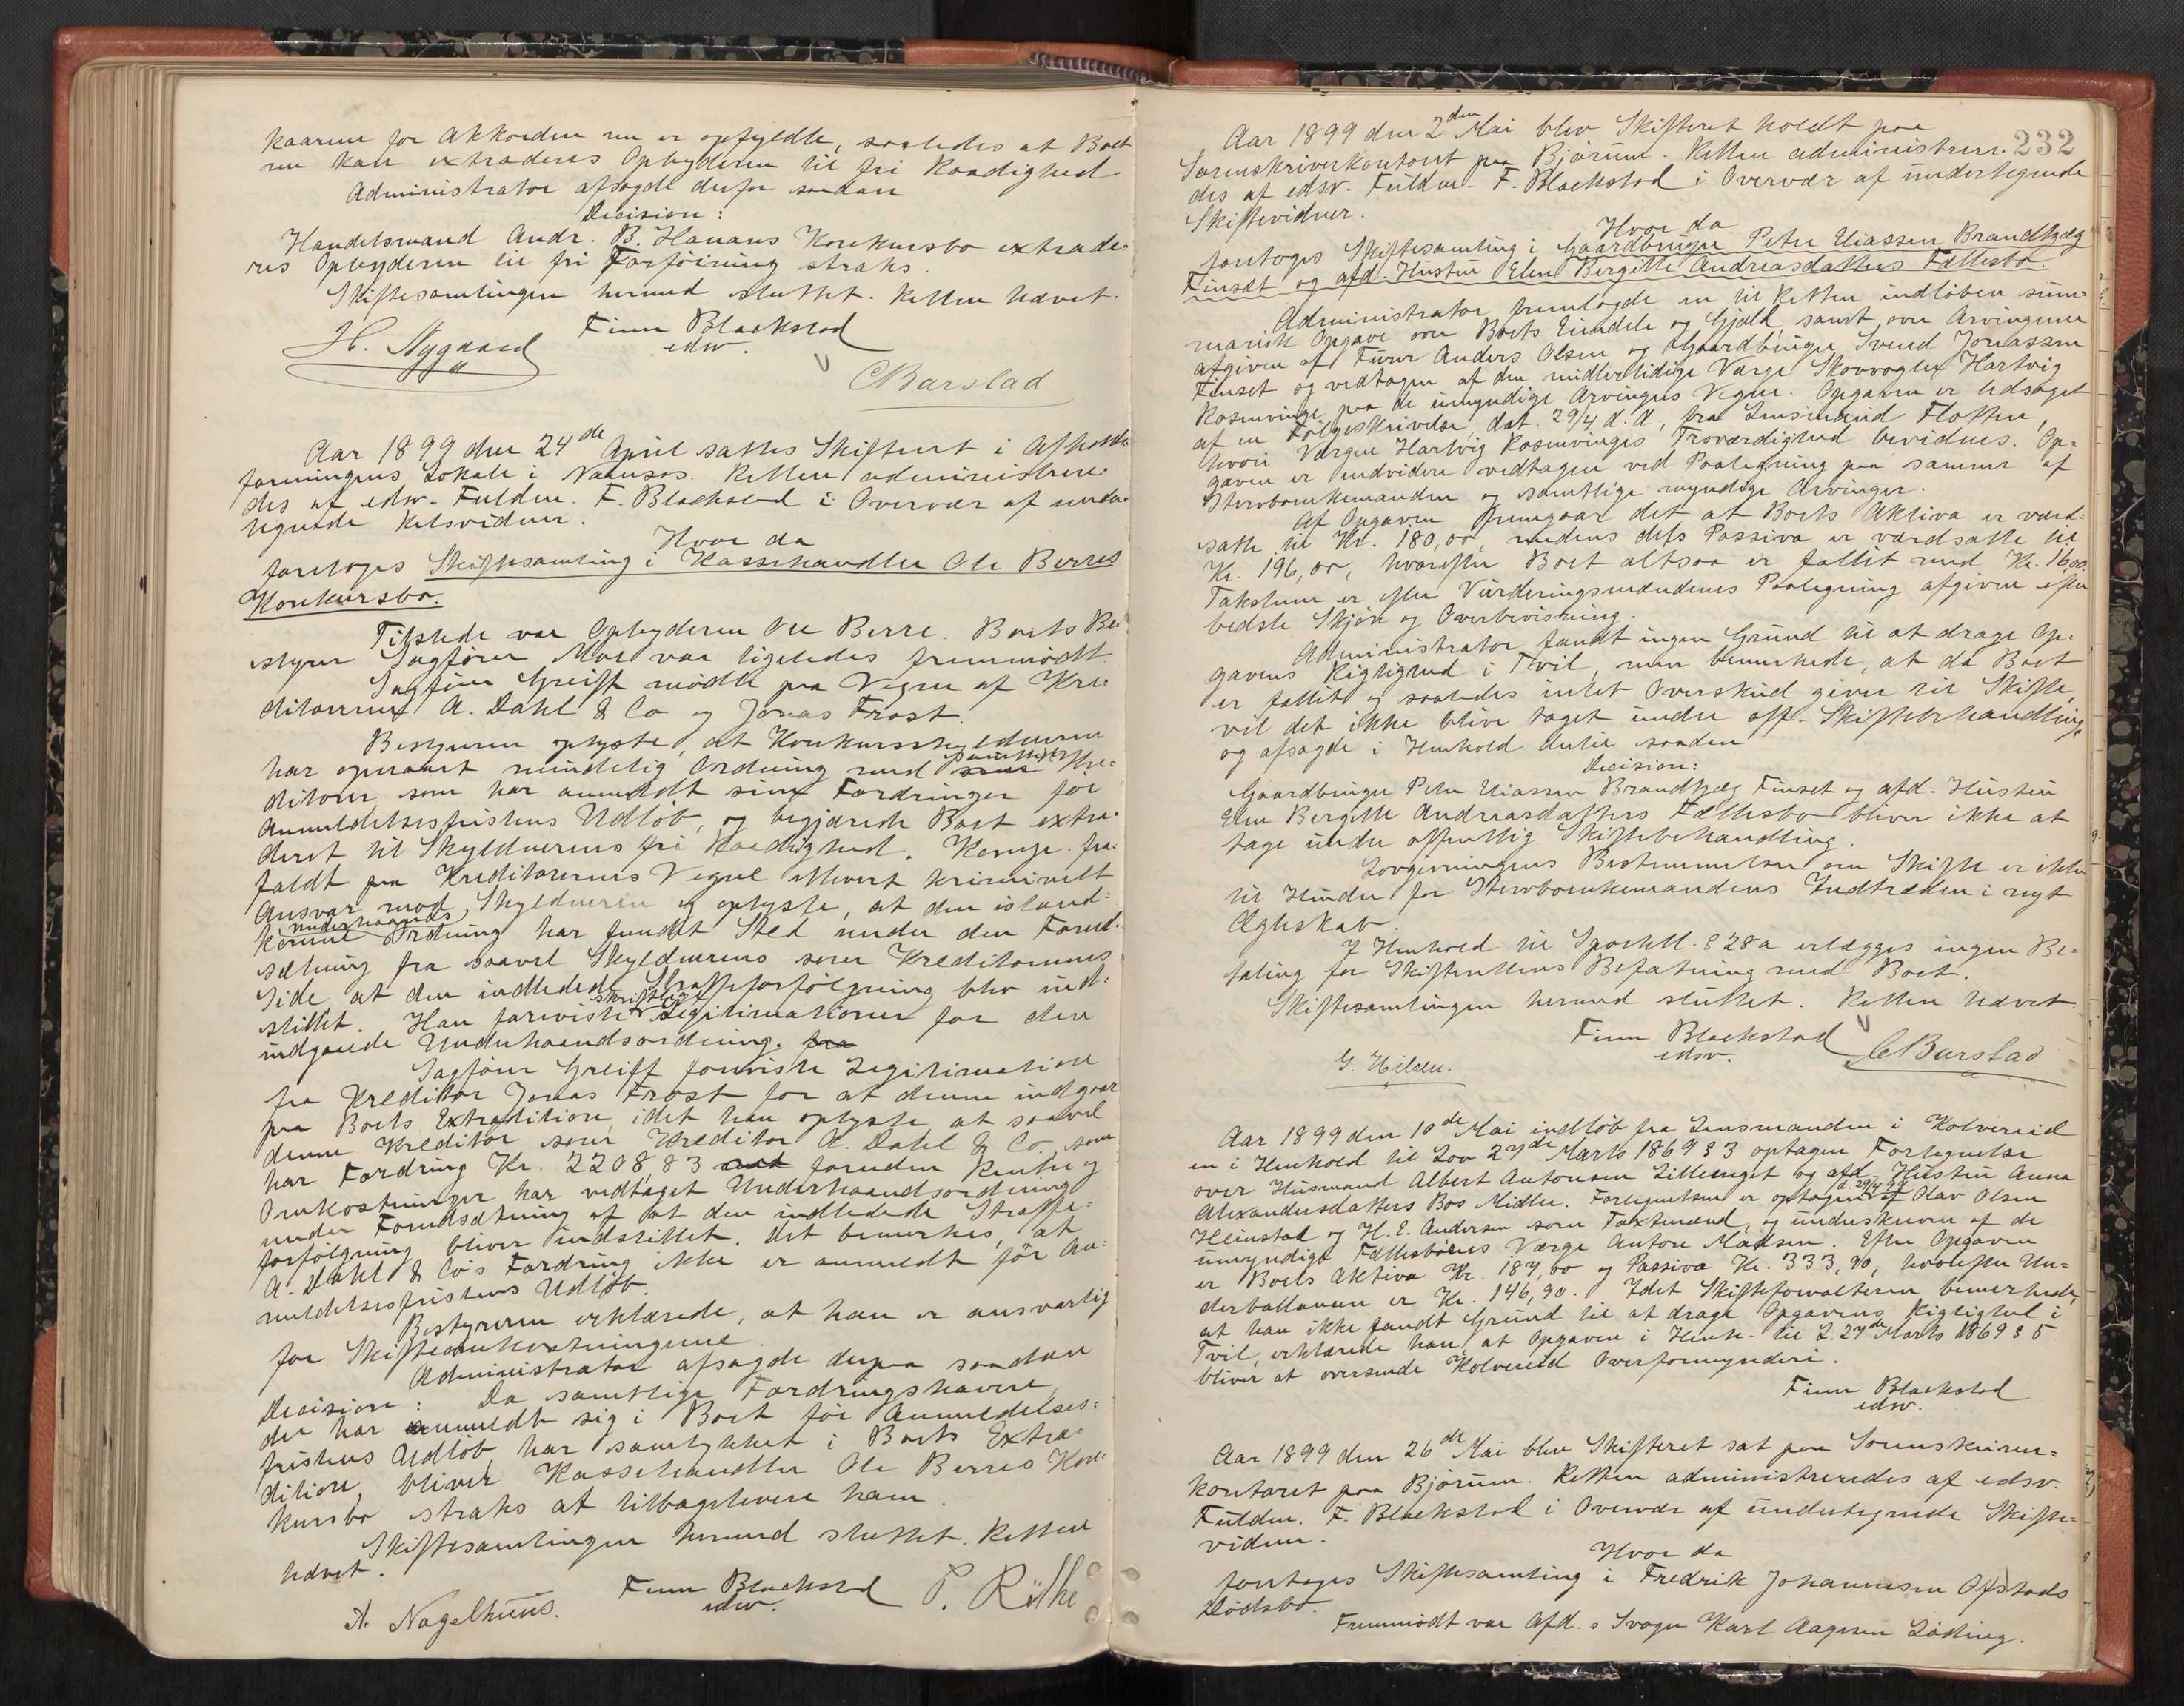 kaarene for Akkorden nu er opfyldte, saaledes at Boet
nu kan extraderes Opbyderen til fri Raadighed
Administrator afsagde derfor saadan
Decision:
Handelsmand Andr. B. Hanans Konkursbo extrade-
res Opbyderen til fri Forføining straks.
Skiftesamlingen hermed sluttet. Retten hævet.
H. Nygaard Finn Blackstad
edsv.
C Barstad
Aar 1899 den 24de April sattes Skifteret i Afholds-
foreningens Lokale i Namsos. Retten administrere-
des af edsv. Fuldm. F. Blackstad i Overvær af under-
tegnede Retsvidner.
Hvor da
foretoges Skiftesamling i Kassehandler Ole Berres
Konkursbo.
Tilstede var Opbyderen Ole Berre. Boets Be-
styrer Sagfører Moe var ligeledes fremmødt.
Sagfører Greiff mødte paa Vegne af Kre-
ditorerne A. Dahl & Co og Jonas Frost.
Bestyreren oplyste, at Konkursskyldneren
har opnaaet mindelig Ordning med samtlige Kre-
ditorer, som har anmeldt sine Fordringer før
Anmeldelsesfristens Udløb, og begjærede Boet extra-
deret til Skyldnerens fri Raadighed. Komp. fra-
faldt paa Kreditorernes Vegne ethvert kriminelt
Ansvar mod Skyldneren og oplyste, at den istand-
komne underhaands Ordning har fundet Sted under den Forud-
sætning fra saavel Skyldnerens som Kreditorernes
Side, at den indledede Strafforfølgning blev ind-
stillet. Han foreviste skriftlige Legitimationer for den
indgaaede Underhaandsordning. fra
Sagfører Greiff foreviste Legitimation
fra Kreditor Jonas Frost for at denne indgaar
paa Boets Extradition, idet han oplyste at saavel
denne Kreditor som Kreditor A. Dahl & Co., som
har Fordring Kr. 2208,83 foruden Renter og
Omkostninger, har vedtaget Underhaandsordning
under Forudsætning af at den indledede Straffe-
forfølgning bliver indstillet. Det bemerkes, at
A. Dahl & Co's Fordring ikke er anmeldt før An-
meldelsesfristens Udløb.
Bestyreren erklærede, at han er ansvarlig
for Skifteomkostningerne.
Administrator afsagde derpaa saadan
Decision: Da samtlige Fordringshavere,
der har anmeldt sig i Boet før Anmeldelses-
fristens Udløb, har samtykket i Boets Extra-
dition, bliver Kassehandler Ole Berres Kon-
kursbo straks at tilbagelevere ham.
Skiftesamlingen hermed sluttet. Retten
hævet.
A. Nagelhuus. Finn Blackstad P. Röthe
edsv.
232
Aar 1899 den 2den Mai blev Skifteret holdt paa
Sorenskriverkontoret paa Bjørum. Retten administrere-
des af edsv. Fuldm. F. Blackstad i Overvær af undertegnede
Skiftevidner.
Hvor da
foretoges Skiftesamling i Gaardbruger Peter Eliassen Brandtzæg
Finset og afd. Hustru Elen Bergitte Andreasdatters Fællesbo.
Administrator fremlagde en til Retten indløben sum-
marisk Opgave over Boets Eiendele og Gjæld samt over Arvingerne
afgiven af Furer Anders Olsen og Gaardbruger Svend Jonassen
Finset og vedtagen af den midlertidige Værge Skovvogter Hartvig
Rosenvinge paa de umyndige Arvingers Vegne. Opgaven er ledsaget
af en Følgeskrivelse, dat. 29/4 d. A., fra Lensmand Flotten,
hvori Værgen Hartvig Rosenvinges Troværdighed bevidnes. Op-
gaven er endvidere vedtagen ved Paategning paa samme af
Stervboenkemanden og samtlige myndige Arvinger.
Af Opgaven fremgaar det at Boets Aktiva er værd-
satte til Kr. 180,00, medens dets Passiva er værdsatte til
Kr. 196,00, hvorefter Boet altsaa er fallit med Kr. 16,00.
Taksterne er efter Vurderingsmændenes Paategning afgiven efter
bedste Skjøn og Overbevisning.
Administrator fandt ingen Grund til at drage Op-
gavens Rigtighed i Tvil, men bemerkede, at da Boet
er fallit og saaledes intet Overskud giver til Skifte,
vil det ikke blive taget under off. Skiftebehandling,
og afsagde i Henhold dertil saadan
Decision:
Gaardbruger Peter Eliassen Brandtzæg Finset og afd. Hustru
Elen Bergitte Andreasdatters Fællesbo bliver ikke at
tage under offentlig Skiftebehandling.
Lovgivningens Bestemmelser om Skifte er ikke
til Hinder for Stervboenkemandens Indtræden i nyt
Ægteskab.
I Henhold til Sportell. § 28a erlægges ingen Be-
taling for Skifterettens Befatning med Boet.
Skiftesamlingen hermed sluttet. Retten hævet.
Finn Blackstad
edsv.
G. Hilden. C Barstad
Aar 1899 den 10de Mai indløb fra Lensmanden i Kolvereid
en i Henhold til Lov 27de Marts 1869 § 3 optagen Fortegnelse
over Husmand Albert Antonsen Lilleenget og afd. Hustru Anna
Alexandersdatters Bos Midler. Fortegnelsen er optagen d. 29/4 99 af Olav Olsen
Heimstad og H. E. Andersen som Taxtmænd, og underskreven af de
umyndige Fællesbørns Værge Antore Madsen. Efter Opgaven
er Boets Aktiva Kr. 187,00 og Passiva Kr. 333,90, hvorefter Un-
derballansen er Kr. 146,90. Idet Skifteforvalteren bemerkede,
at han ikke fandt Grund til at drage Opgavens Rigtighed i
Tvil, erklærede han, at Opgaven i Henh. til L. 27de Marts 1869 § 5
bliver at oversende Kolvereid Overformynderi.
Finn Blackstad
edsv.
Aar 1899 den 26de Mai blev Skifteret sat paa Sorenskriver-
kontoret paa Bjørum. Retten administreredes af edsv.
Fuldm. F. Blackstad i Overvær af undertegnede Skifte-
vidner.
Hvor da
foretoges Skiftesamling i Fredrik Johannesen Ofstads
Dødsbo.
Fremmødt var Afd.s Svoger Karl Aagesen Løding.